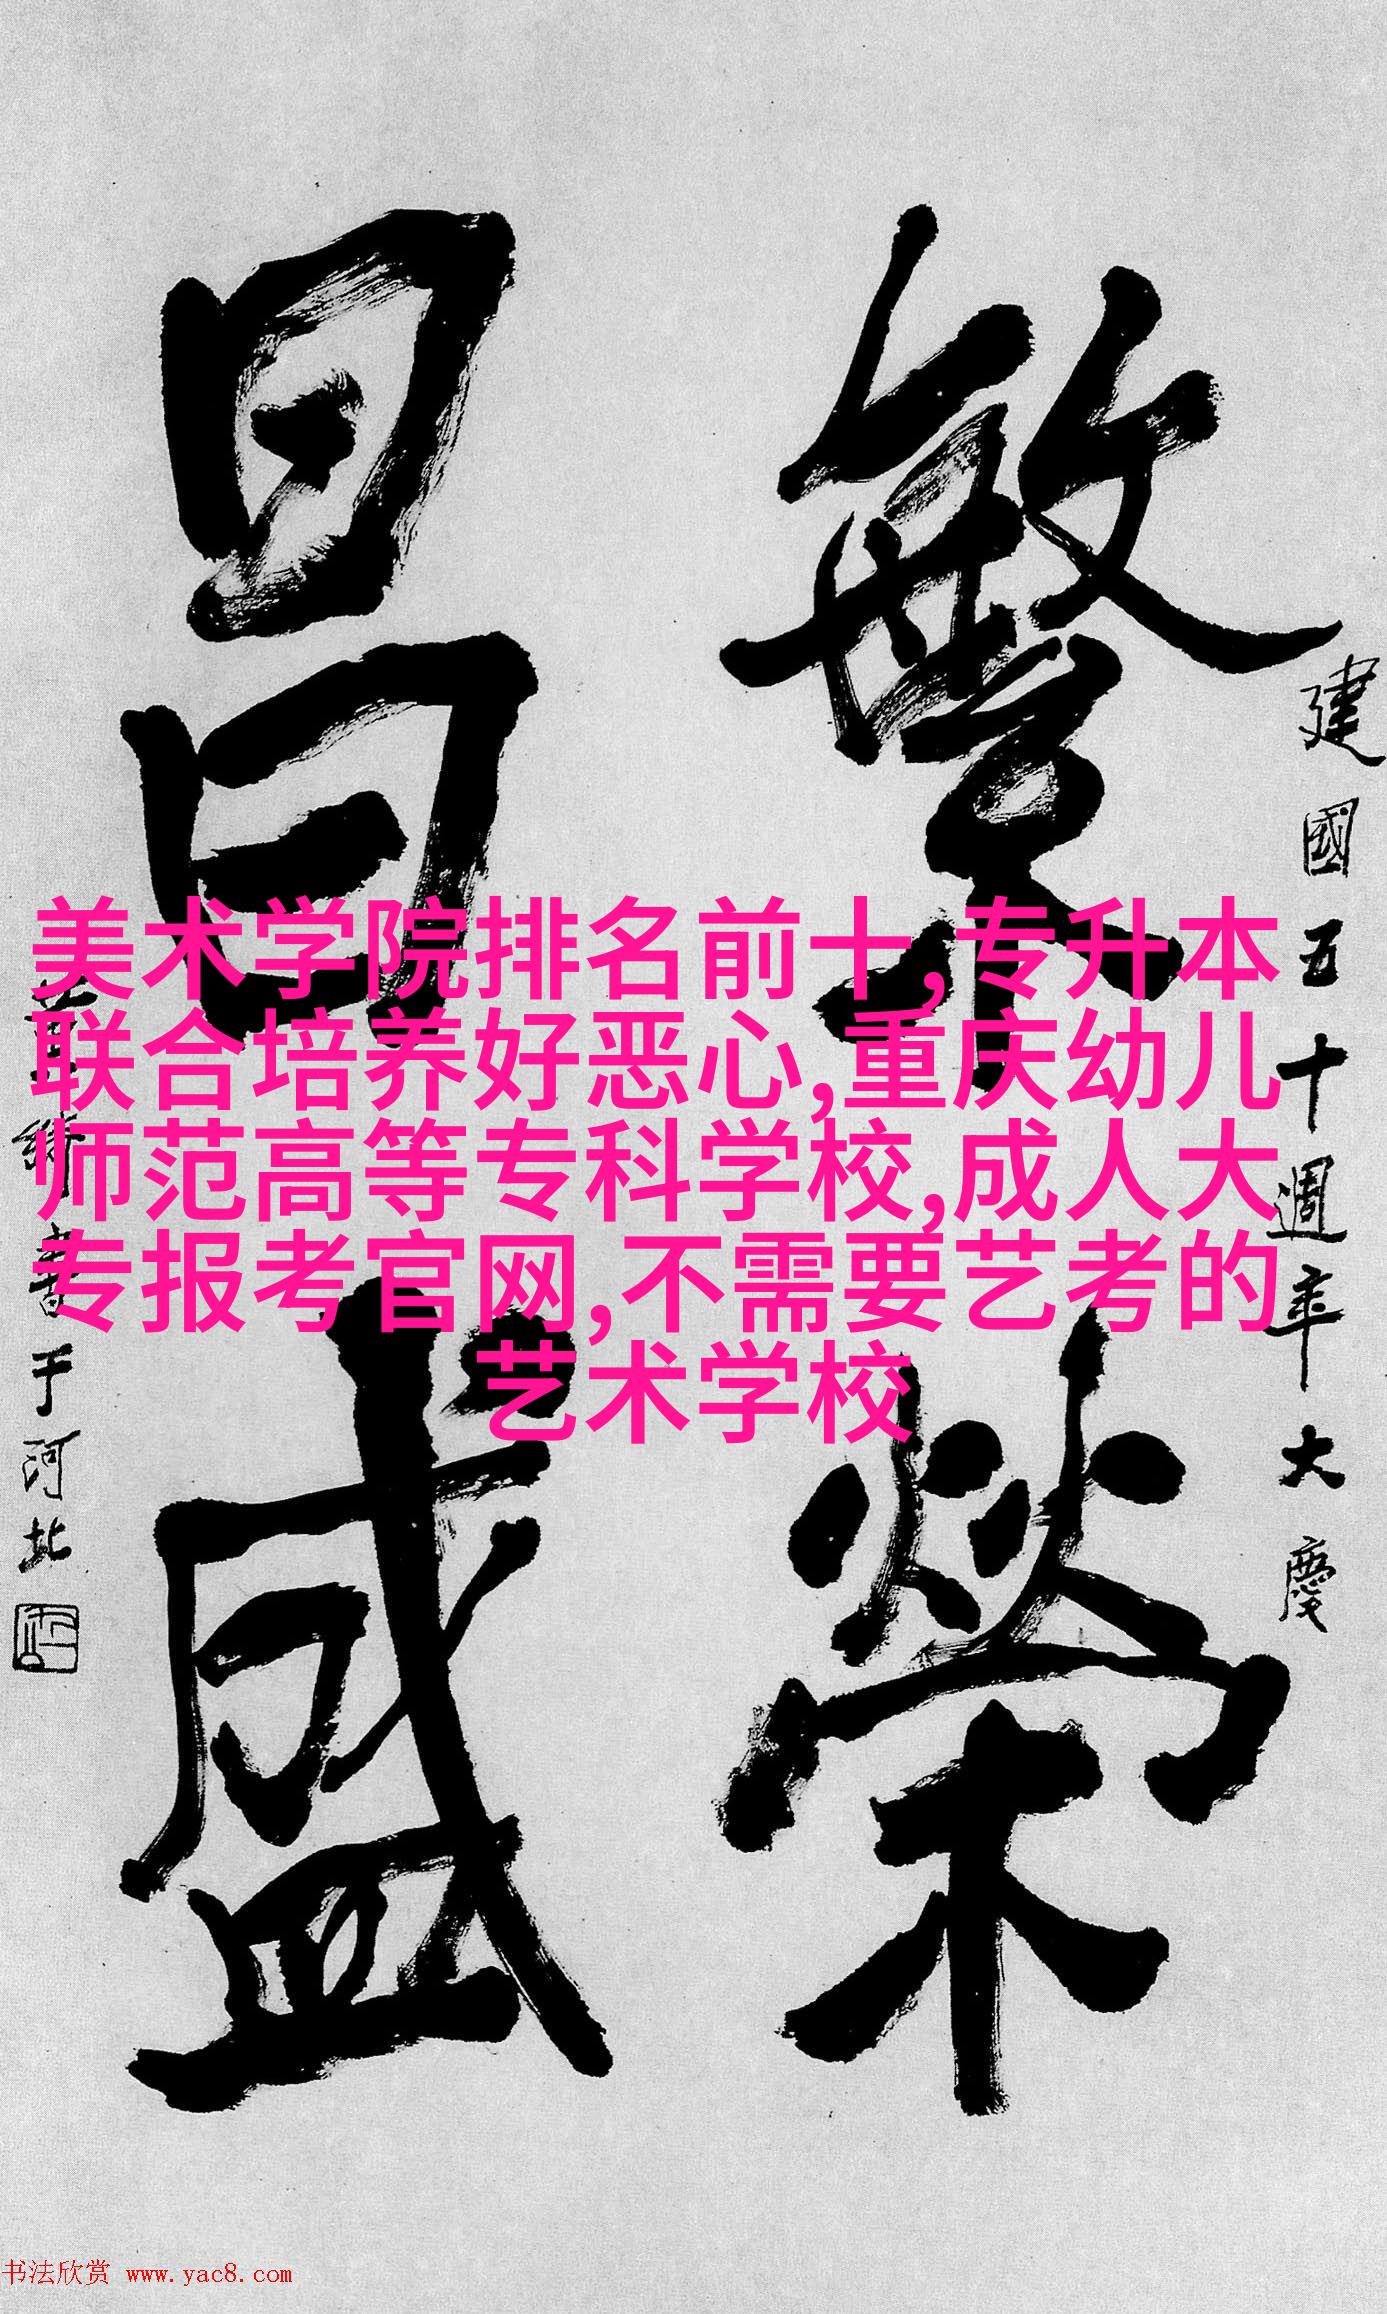 繁榮
昌盛
建國五十週年大慶
書于河北
美术学院排名前十,专升本
联合培养好恶心,重庆幼儿
师范高等专科学校,成人大
专报考官网,不需要艺考的
艺术学校
书法欣赏 www.yac8.com